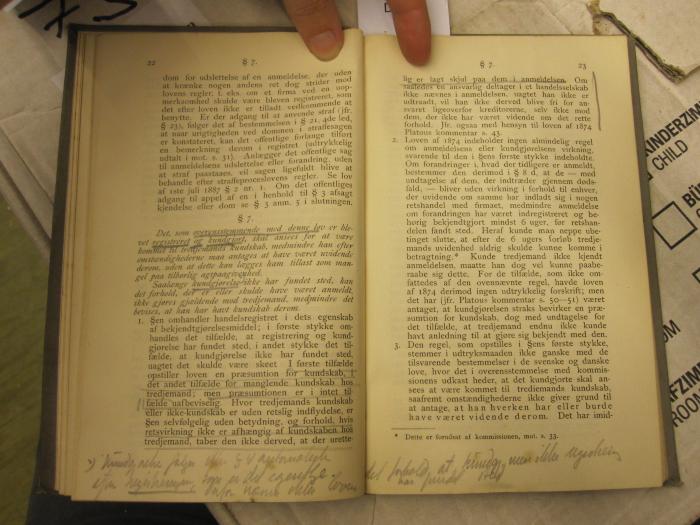 22
§ 7.
dom for udslettelse af en anmeldelse, der uden
at krænke nogen andens ret dog strider mod
lovens regler; t. eks. om et firma ved en uop-
merksomhed skulde være bleven registreret, som
det efter loven ikke er tilladt vedkommende at
benytte. Er der adgang til at anvende straf (jfr.
§ 23), følger det af bestemmelsen i § 21, 4de led,
at naar urigtigheden ved dommen i straffesagen
er konstateret, kan det offentlige forlange tilført
en bemerkning derom i registret (udtrykkelig
udtalt i mot. s. 31). Anlægger det offentlige sag
til anmeldelsens udslettelse eller forandring, uden
at straf paastaaes, vil sagen ligefuldt blive at
behandle efter straffeproceslovens regler. Se lov
af 1ste juli 1887 § 2 nr. 1. Om det offentliges
adgang til appel af en i henhold til § 3 afsagt
kjendelse eller dom se § 3 anm. 5 i slutningen.
§ 7.
Det, som overensstemmende med denne lov er ble-
vet registreret og kundgjort, skal ansees for at være
kommet til tredjemands kundskab, medmindre han efter
omstændighederne maa antages at have været uvidende
derom, uden at dette kan lægges ham tillast som man-
gel paa tilbørlig agtpaagivenhed.
Saalænge kundgjørelse ikke har fundet sted, kan
det forhold, der er eller skulde have været anmeldt,
ikke gjøres gjældende mod tredjemand, medmindre det
bevises, at han har havt kundskab derom.
1. §en omhandler handelsregistret i dets egenskab
af bekjendtgjørelsesmiddel; i første stykke om-
handles det tilfælde, at registrering og kund-
gjørelse har fundet sted, i andet stykke det til-
fælde, at kundgjørelse ikke har fundet sted,
uagtet det skulde være skeet I første tilfælde
opstiller loven en præsumtion for kundskab, i
det andet tilfælde for manglende kundskab hos
tredjemand; men præsumtionen er i intet til-
fælde uafbeviselig. Hvor tredjemands kundskab
eller ikke-kundskab er uden retslig indflydelse, er
§en selvfølgelig uden betydning, og forhold, hvis
retsvirkning ikke er afhængig af kundskaben hos
tredjemand, taber den ikke derved, at der urette-
§ 7.
23
lig er lagt skjul paa dem i anmeldelsen. Om
saaledes en ansvarlig deltager i et handelsselskab
ikke nævnes i anmeldelsen, uagtet han ikke er
udtraadt, vil han ikke derved blive fri for an-
svaret ligeoverfor kreditorerne, selv ikke mod
dem, der ikke har været vidende om det rette
forhold. Jfr. ogsaa med hensyn til loven af 1874
Platous kommentar s. 43.
2. Loven af 1874 indeholder ingen almindelig regel
om anmeldelsens eller kundgjørelsens virkning,
svarende til den i §ens første stykke indeholdte.
Om forandringer i, hvad der tidligere er anmeldt,
bestemmer den derimod i § 8 d, at de — med
undtagelse af dem, der indtræder gjennem døds-
fald, — bliver uden virkning i forhold til enhver,
der uvidende om samme har indladt sig i nogen
retshandel med firmaet, medmindre anmeldelse
om forandringen har været indregistreret og be-
hørig bekjendtgjort mindst 6 uger, før retshan-
delen fandt sted. Heraf kunde man neppe ube-
tinget slutte, at efter de 6 ugers forløb tredje-
mands uvidenhed aldrig skulde kunne komme i
betragtning.* Kunde tredjemand ikke kjendt
anmeldelsen, maatte han dog vel kunne paabe-
raabe sig dette. For de tilfælde, som ikke om-
fattedes af den ovennævnte regel, havde loven
af 1874 derimod ingen udtrykkelig forskrift; men
det har (jfr. Platous kommentar s. 50—51) været
antaget, at kundgjørelsen straks bevirker en præ-
sumtion for kundskab, dog med undtagelse for
det tilfælde, at tredjemand endnu ikke kunde
havt anledning til at gjøre sig bekjendt med den.
3. Den regel, som opstilles i §ens første stykke,
stemmer i udtryksmaaden ikke ganske med de
tilsvarende bestemmelser i de svenske og danske
love, hvor det i overensstemmelse med kommis-
sionens udkast heder, at det kundgjorte skal an-
sees at være kommet til tredjemands kundskab,
saafremt omstændighederne ikke giver grund til
at antage, at han hverken har eller burde
have været vidende derom. Det har imid-
* Dette er forudsat af kommissionen, mot. s. 33.
KINDERZIN
CHILD